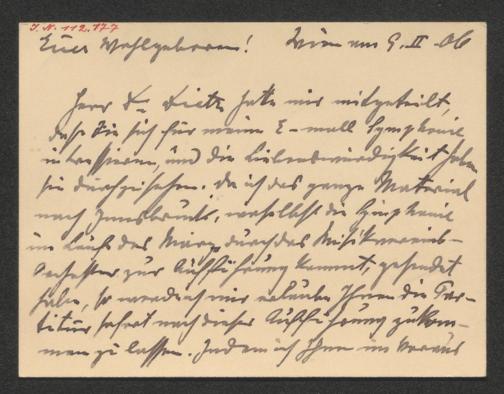 I.N. 112.177
Euer Wohlgeboren! Wien am 9. II. 06
Herr Dr. Dietz hatte mir mitgeteilt,
dass Sie sich für meine E-moll Symphonie
interessieren, und die Liebenswürdigkeit haben
sie durchzusehen. Da ich das ganze Material
nach Innsbruck, woselbst die Symphonie
im Laufe des März durch das Musikvereins-
orchester zur Aufführung kommt, gesendet
habe, so werde ich mir erlauben Ihnen die Par-
titur sofort nach dieser Aufführung zukom-
men zu lassen. Indem ich Ihnen im Voraus